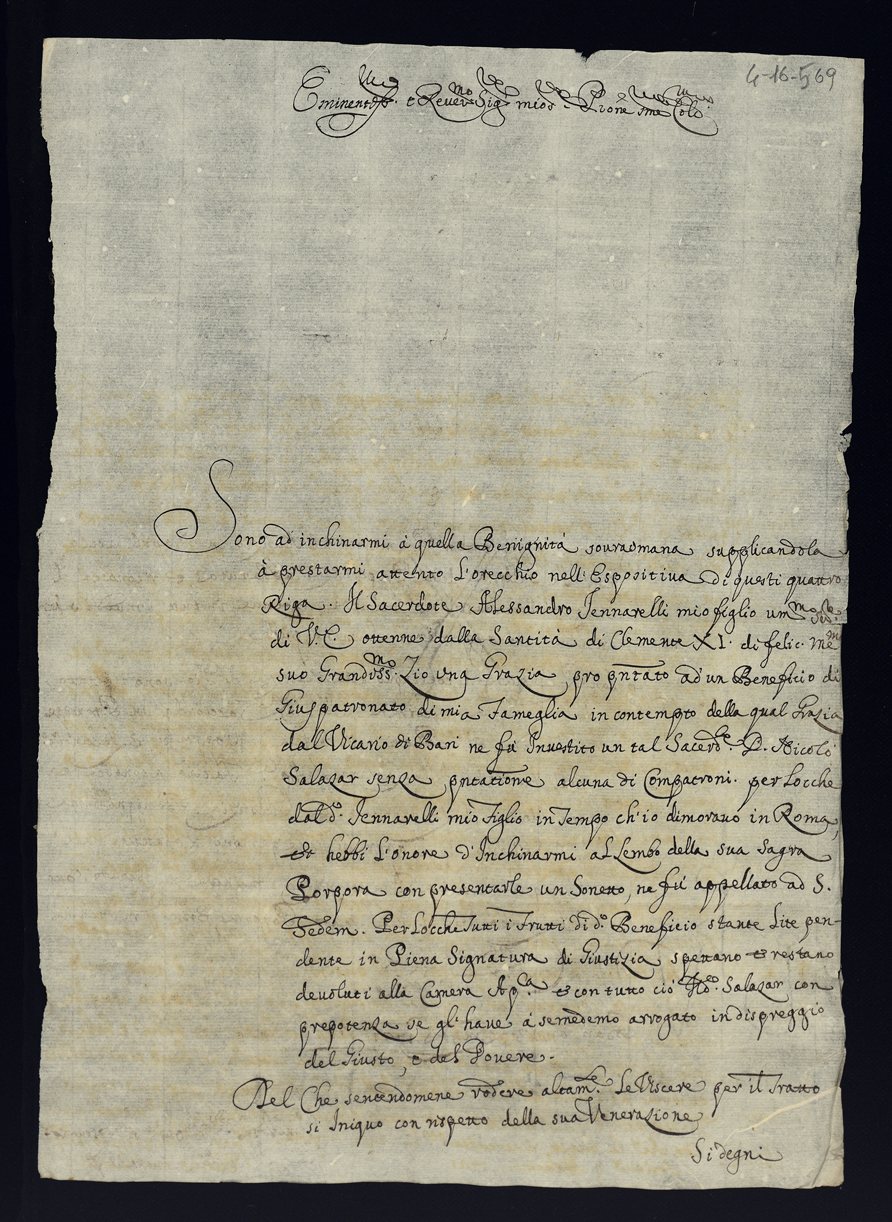 4-16-569
Eminentiss.mo e Rever.mo Sig.re mio e P.rone sing.mo Col.mo
Sono ad inchinarmi à quella Benignità souraomana supplicandola
à prestarmi attento L'orecchio nell'Espositiva di questi quattro
Riga. Il Sacerdote Alessandro Jennarelli mio figlio um.mo
di V.E. ottenne dalla Santità di Clemente XI. di felic. me
suo Grandiss.mo Zio una Grazia pro pntato ad un Beneficio di
Giuspatronato di mia Fameglia in contempto della qual Grazia
dal Vicario di Bari ne fù Investito un tal Sacerd.te D. Nicolò
Salazar senza pntatione alcuna di Compatroni. per Locche
dal d.o Jennarelli mio Figlio in Tempo ch'io dimorauo in Roma,
et hebbi L'onore d'Inchinarmi al Lembo della sua Sagra
Porpora con presentarle un Sonetto, ne fù appellato ad S.
Sedem. Per Locche Tutti i Frutti di d.o Beneficio stante Lite pen-
dente in Piena Signatura di Giustizia spettano et restano
devoluti alla Camera Ap.ca et con tutto ciò il d.o Salazar con
prepotenza se gl'have à semedemo arrogato in dispreggio
del Giusto, e del Pouere.
Del Che sentendomene rodere altam.te Le Viscere per il Tratto
si Iniquo con rispetto della sua Venerazione
Si degni